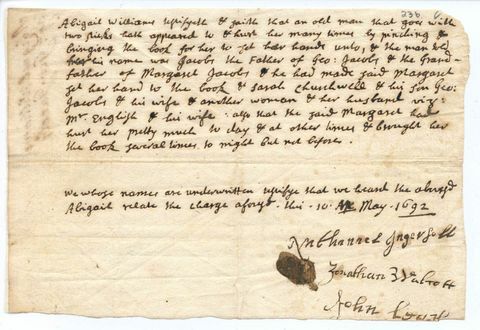 236
Abigail Williams testifyeth & saith that an old man that goes with
two sticks hath appeared to & hurt her many times by pinching &
bringing the book for her to set her hand unto, & the man told
her his name was Jacobs the Father of Geo: Jacobs & the Grand-
father of Margaret Jacobs & he had made said Margaret
set her hand to the book & Sarah Churchwell & his son Geo:
Jacobs & his wife & another woman & her husband viz:
Mr. English & his wife: also that the said Margaret had
hurt her pretty much to day & at other times & brought her
the book severall times to night but not before.
we whose names are underwritten testifye that we heard the
Abigail relate the charge aforsd. this 10 May. 1692
Nathanael Ingersoll
Jonathan Walcott
John